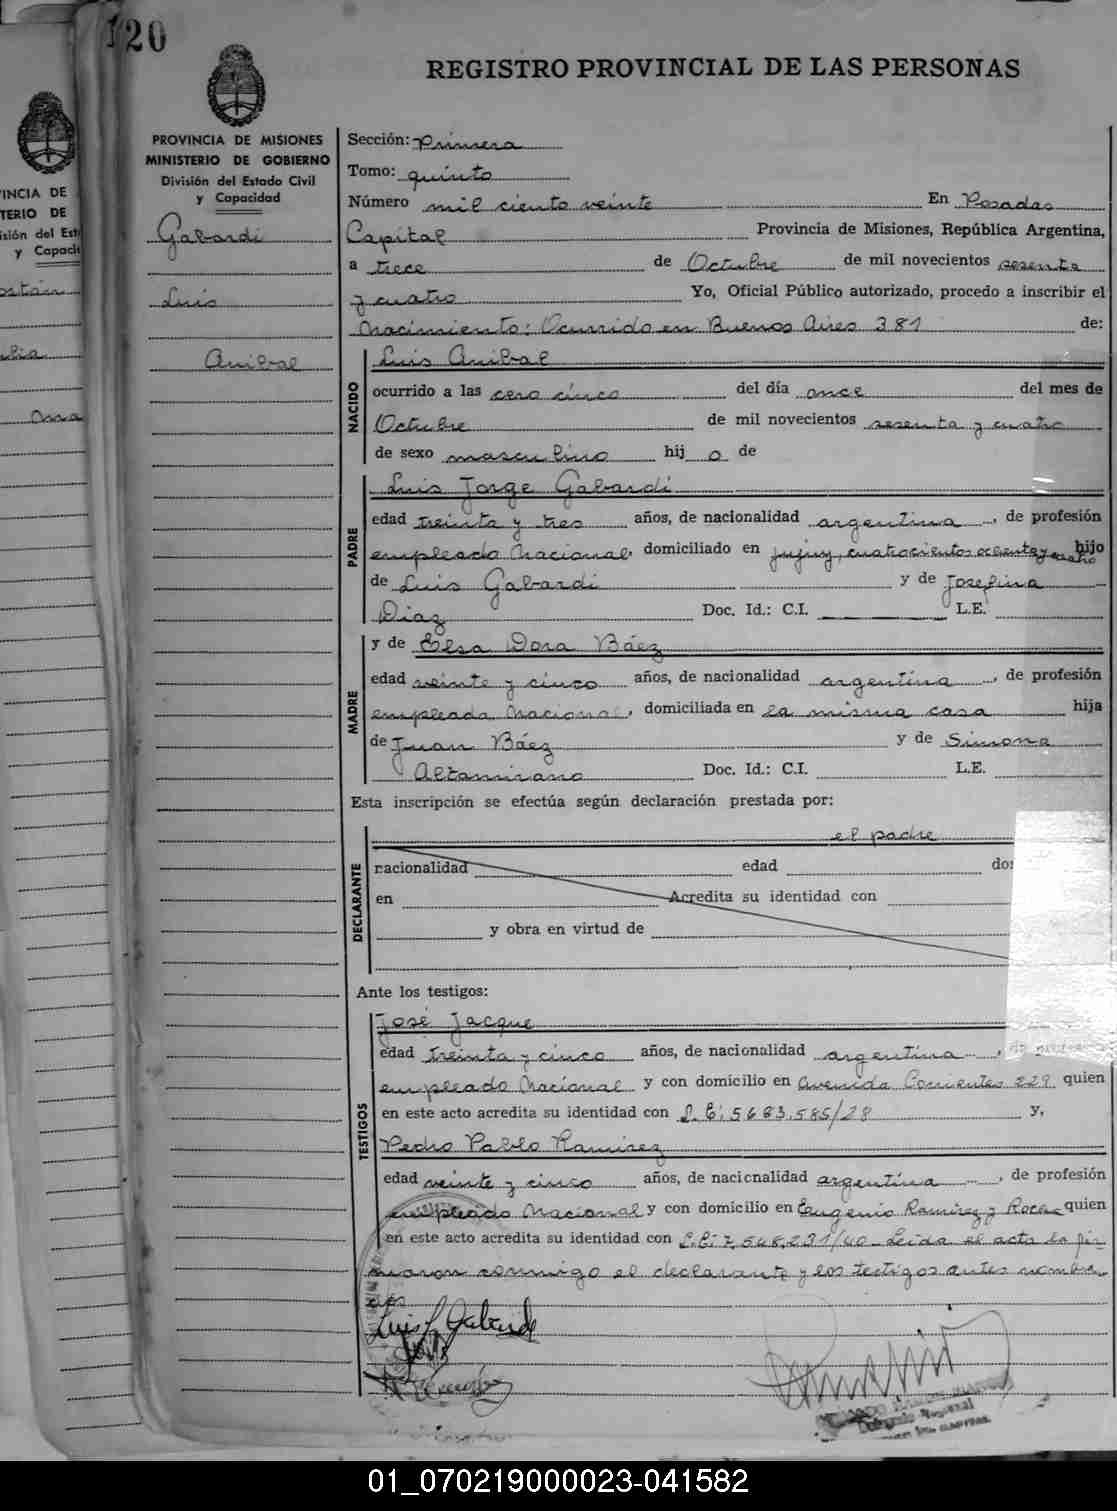 120
REGISTRO PROVINCIAL DE LAS PERSONAS
PROVINCIA DE MISIONES
MINISTERIO DE GOBIERNO
División del Estado Civil
y Capacidad
Gabardi
Luis
Anibal
Sección: Primera
Tomo: quinto
Número mil ciento veinte En Posadas
Capital Provincia de Misiones, República Argentina,
a trece de Octubre de mil novecientos sesenta
y cuatro Yo, Oficial Público autorizado, procedo a inscribir el
Nacimiento: Ocurrido en Buenos Aires 381 de:
NACIDO
Luis Anibal
ocurrido a las cero cinco del día once del mes de
Octubre de mil novecientos sesenta y cuatro
de sexo masculino hij o de
PADRE
Luis Jorge Gabardi
edad treinta y tres años, de nacionalidad argentina, de profesión
empleado Nacional, domiciliado en Jujuy, cuatrocientos ochenta y cuatro hijo
de Luis Gabardi y de Josefina
Diaz Doc. Id.: C.I. L.E.
MADRE
y de Elsa Dora Báez
edad veinte y cinco años, de nacionalidad argentina, de profesión
empleada Nacional, domiciliada en la misma casa hija
de Juan Báez y de Simona
Altamirano Doc. Id.: C.I. L.E.
Esta inscripción se efectúa según declaración prestada por:
DECLARANTE
el padre
nacionalidad edad
en Acredita su identidad con
y obra en virtud de
Ante los testigos:
TESTIGOS
José Jacque
edad treinta y cinco años, de nacionalidad argentina, de profesión
empleado Nacional y con domicilio en Avenida Corrientes 229 quien
en este acto acredita su identidad con L.E: 5663.585/28 y,
Pedro Pablo Ramirez
edad veinte y cinco años, de nacionalidad argentina, de profesión
empleado Nacional y con domicilio en Eugenio Ramirez y Roca quien
en este acto acredita su identidad con L.E: 7.548.231/40 Leida el acta la fir
maron conmigo el declarante y los testigos antes nombra
dos
Luis J Gabardi
01_070219000023-041582